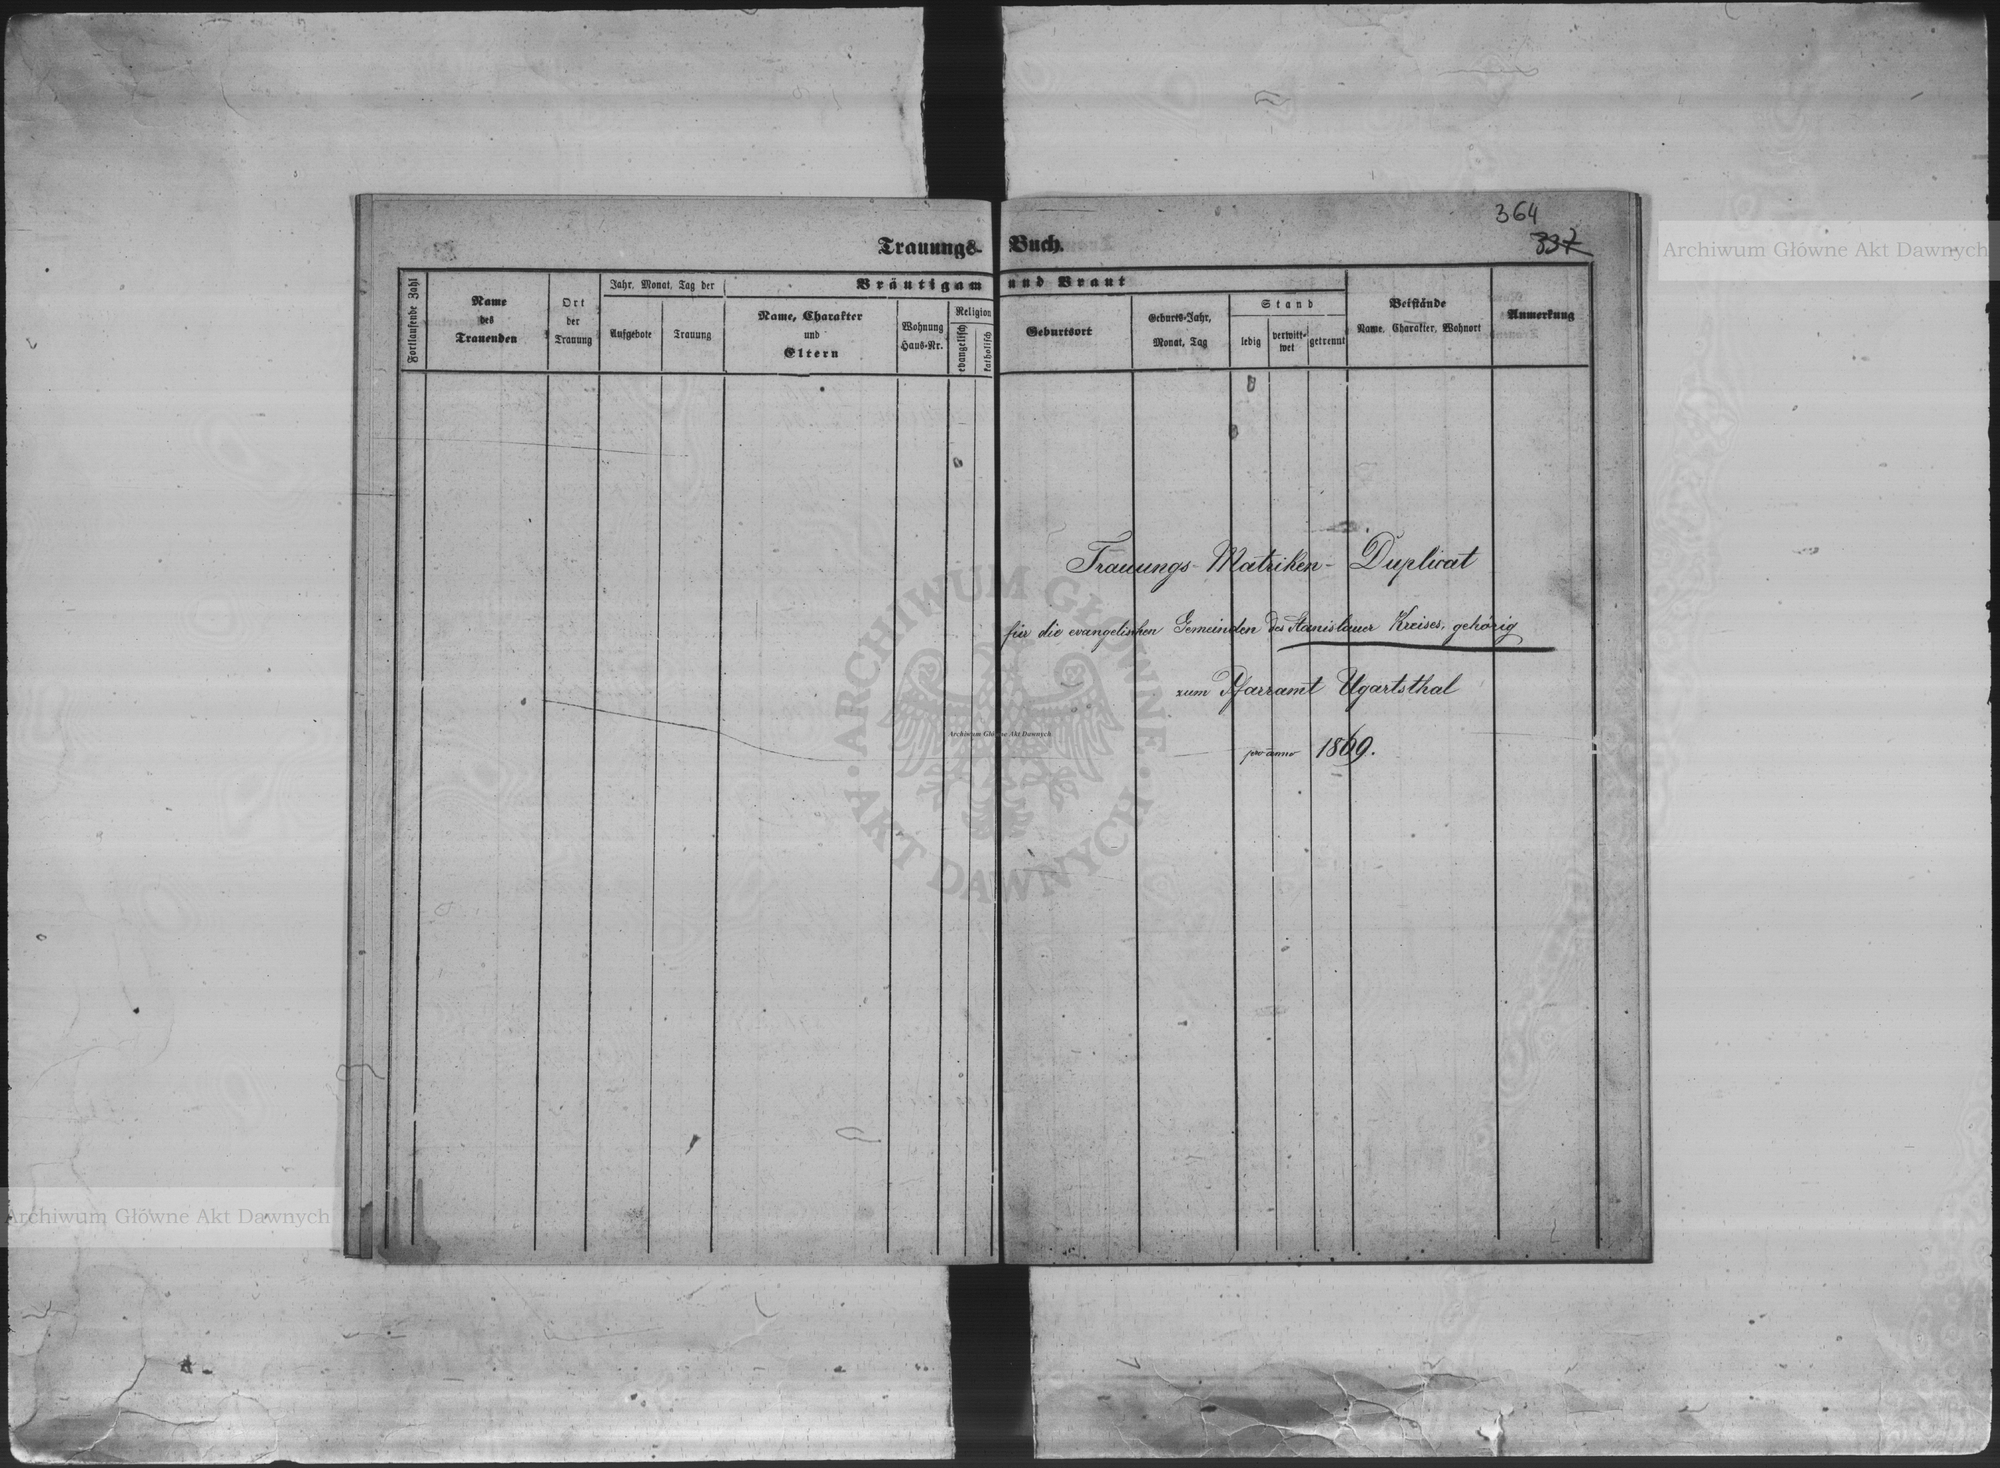 364
337
Trauungs-Buch.
Fortlaufende Zahl
Name des Trauenden
Ort der Trauung
Jahr, Monat, Tag der
Aufgebote
Trauung
Bräutigam und Braut
Name, Charakter und Eltern
Wohnung Haus-Nr.
Religion
evangelisch
katholisch
Geburtsort
Geburts-Jahr, Monat, Tag
Stand
ledig
verwitt-wet
getrennt
Beistände
Name, Charakter, Wohnort
Anmerkung
Trauungs-Matriken-Duplicat
für die evangelischen Gemeinden des Stanislauer Kreises, gehörig
zum Pfarramt Ugartsthal
pro anno 1869.
Archiwum Główne Akt Dawnych
ARCHIWUM GŁÓWNE · AKT DAWNYCH ·
Archiwum Główne Akt Dawnych
Archiwum Główne Akt Dawnych